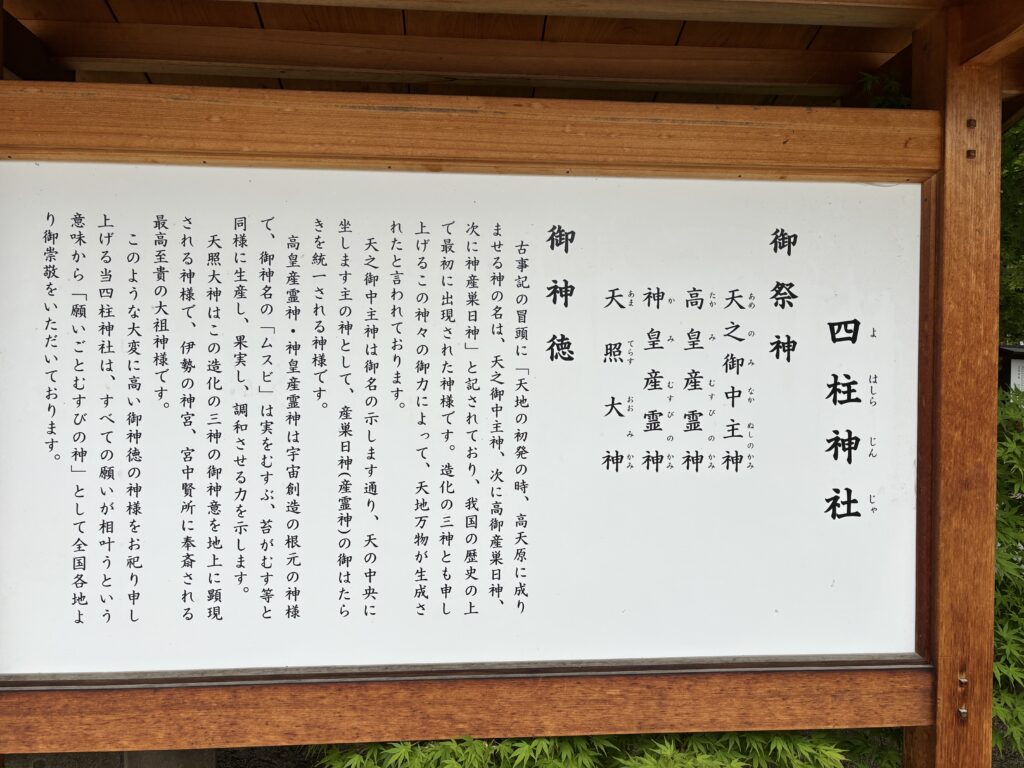 四柱神社
よ はしら じん じゃ
御祭神
天之御中主神
あめ の み なか ぬしのかみ
高皇産霊神
たか み むすび のかみ
神皇産霊神
か み むすび のかみ
天照大神
あま てらす おお み かみ
御神徳
古事記の冒頭に「天地の初発の時、高天原に成り
ませる神の名は、天之御中主神、次に高御産巣日神、
次に神産巣日神」と記されており、我国の歴史の上
で最初に出現された神様です。造化の三神とも申し
上げるこの神々の御力によって、天地万物が生成さ
れたと言われております。
天之御中主神は御名の示します通り、天の中央に
坐します主の神として、産巣日神(産霊神)の御はたら
きを統一される神様です。
高皇産霊神・神皇産霊神は宇宙創造の根元の神様
で、御神名の「ムスビ」は実をむすぶ、苔がむす等と
同様に生産し、果実し、調和させる力を示します。
天照大神はこの造化の三神の御神意を地上に顕現
される神様で、伊勢の神宮、宮中賢所に奉斎される
最高至貴の大祖神様です。
このような大変に高い御神徳の神様をお祀り申し
上げる当四柱神社は、すべての願いが相叶うという
意味から「願いごとむすびの神」として全国各地よ
り御崇敬をいただいております。